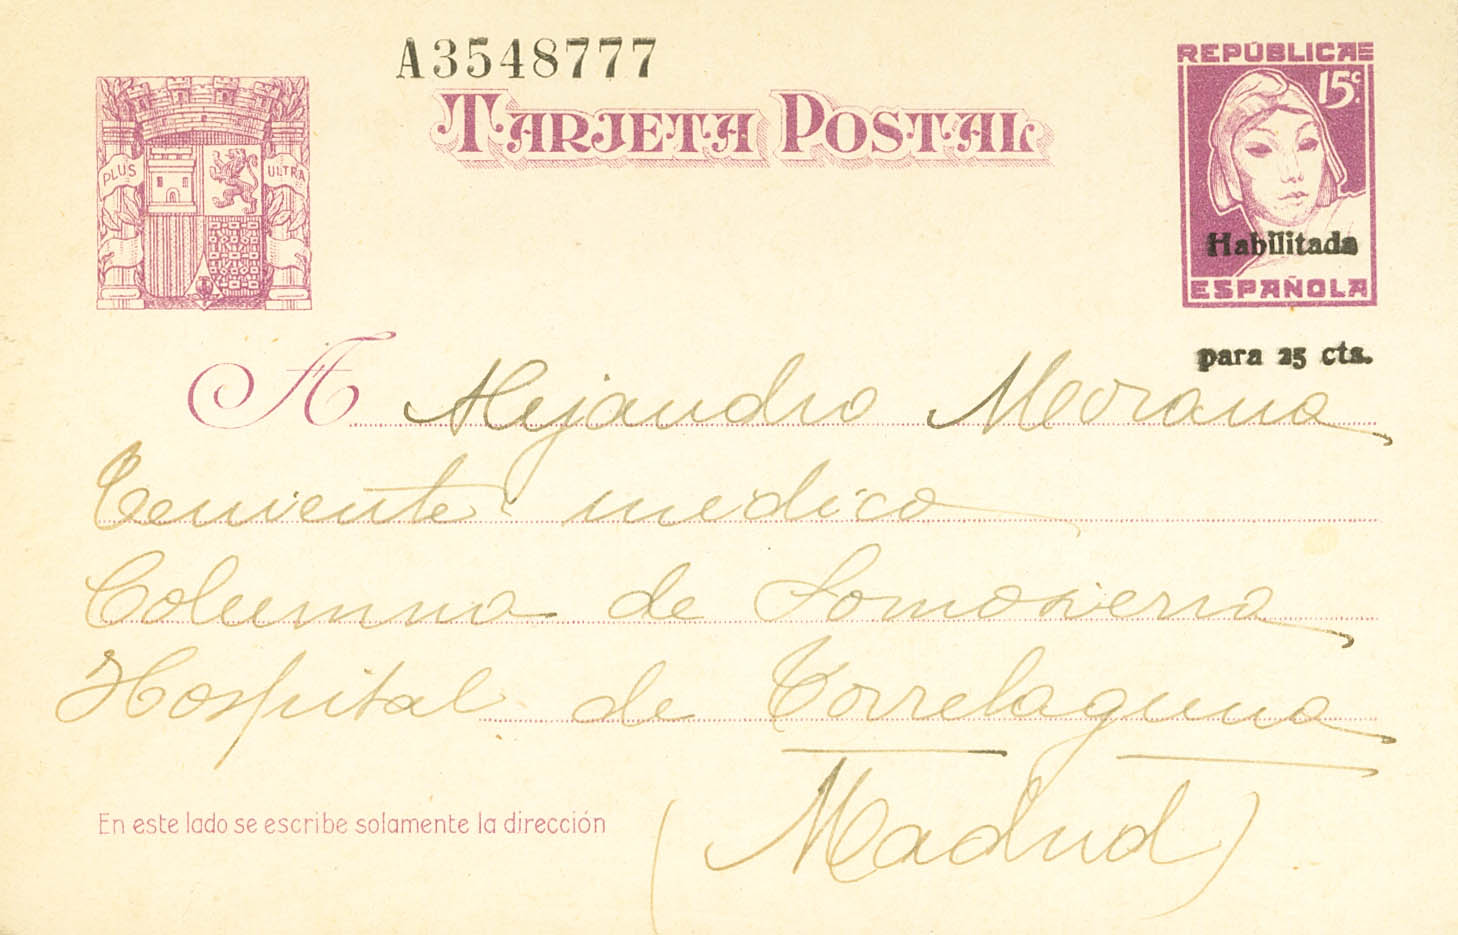 A3548777
TARJETA POSTAL
PLUS ULTRA
REPÚBLICA
15c.
Habilitada
ESPAÑOLA
para 25 cts.
A Alejandro
Teniente medico
Columna de Somosierra
Hospital de Torrelaguna
(Madrid)
En este lado se escribe solamente la dirección